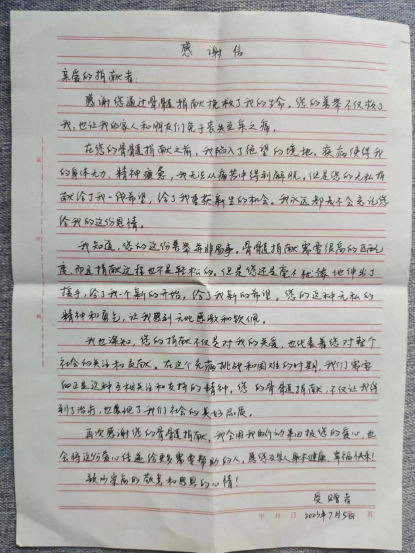 感谢信
亲爱的捐献者：
感谢您通过骨髓捐献挽救了我的生命。您的善举不仅救了
我，也让我的家人和朋友们免于丧失至亲之痛。
在您的骨髓捐献之前，我陷入了绝望的境地。疾病使得我
的身体无力，精神疲惫，我无法从痛苦中得到解脱。但是您的无私捐
献给了我一线希望，给了我重获新生的机会。我永远都不会忘记您
给我的这份恩情。
我知道，您的这份善举并非易事。骨髓捐献需要很高的匹配
度，而且捐献过程也不是轻松的。但是您还是毫不犹豫地伸出了
援手，给了我一个新的开始，给了我新的希望，您的这种无私的
精神和勇气，让我感到无比感激和钦佩。
我也深知，您的捐献不仅是对我的关爱，也代表着您对整个
社会的关注和贡献。在这个充满挑战和困难的时期，我们需要
的正是这种互相关注和支持的精神，您的骨髓捐献，不仅让我得
到了治疗，也展现了我们社会的美好品质。
再次感谢您的骨髓捐献，我会用我的行动来回报您的爱心，也
会将这份爱心传递给更多需要帮助的人，愿您及家人身体健康、幸福快乐！
致以崇高的敬意和感恩的心情！
受赠者
2023年7月5日